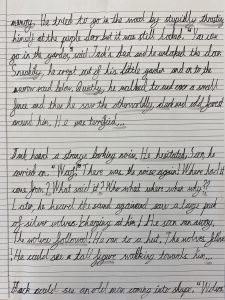 memory. He tried to go in the wood by stupidly throwing
himself at the purple door but it was still locked. "You can
go in the garden," said Jack's dad and he unlocked the door
Quickly, he crept out of his little garden and on to the
narrow road below. Quietly, he walked to and over a small
fence and then he saw the otherworldly, dark and old forest
around him. He was terrified...
Jack heard a strange barking noise. He hesitated, then he
carried on. "Woof!" There was the noise again! Where had it
come from? What said it? Who what where when why??
Later, he heard the sound again and saw a large pack
of silver wolves charging at him! He soon ran away,
The wolves followed! He ran to a hut. The wolves
He could see a tall figure walking towards him...
Jack could see an old man coming into shape.